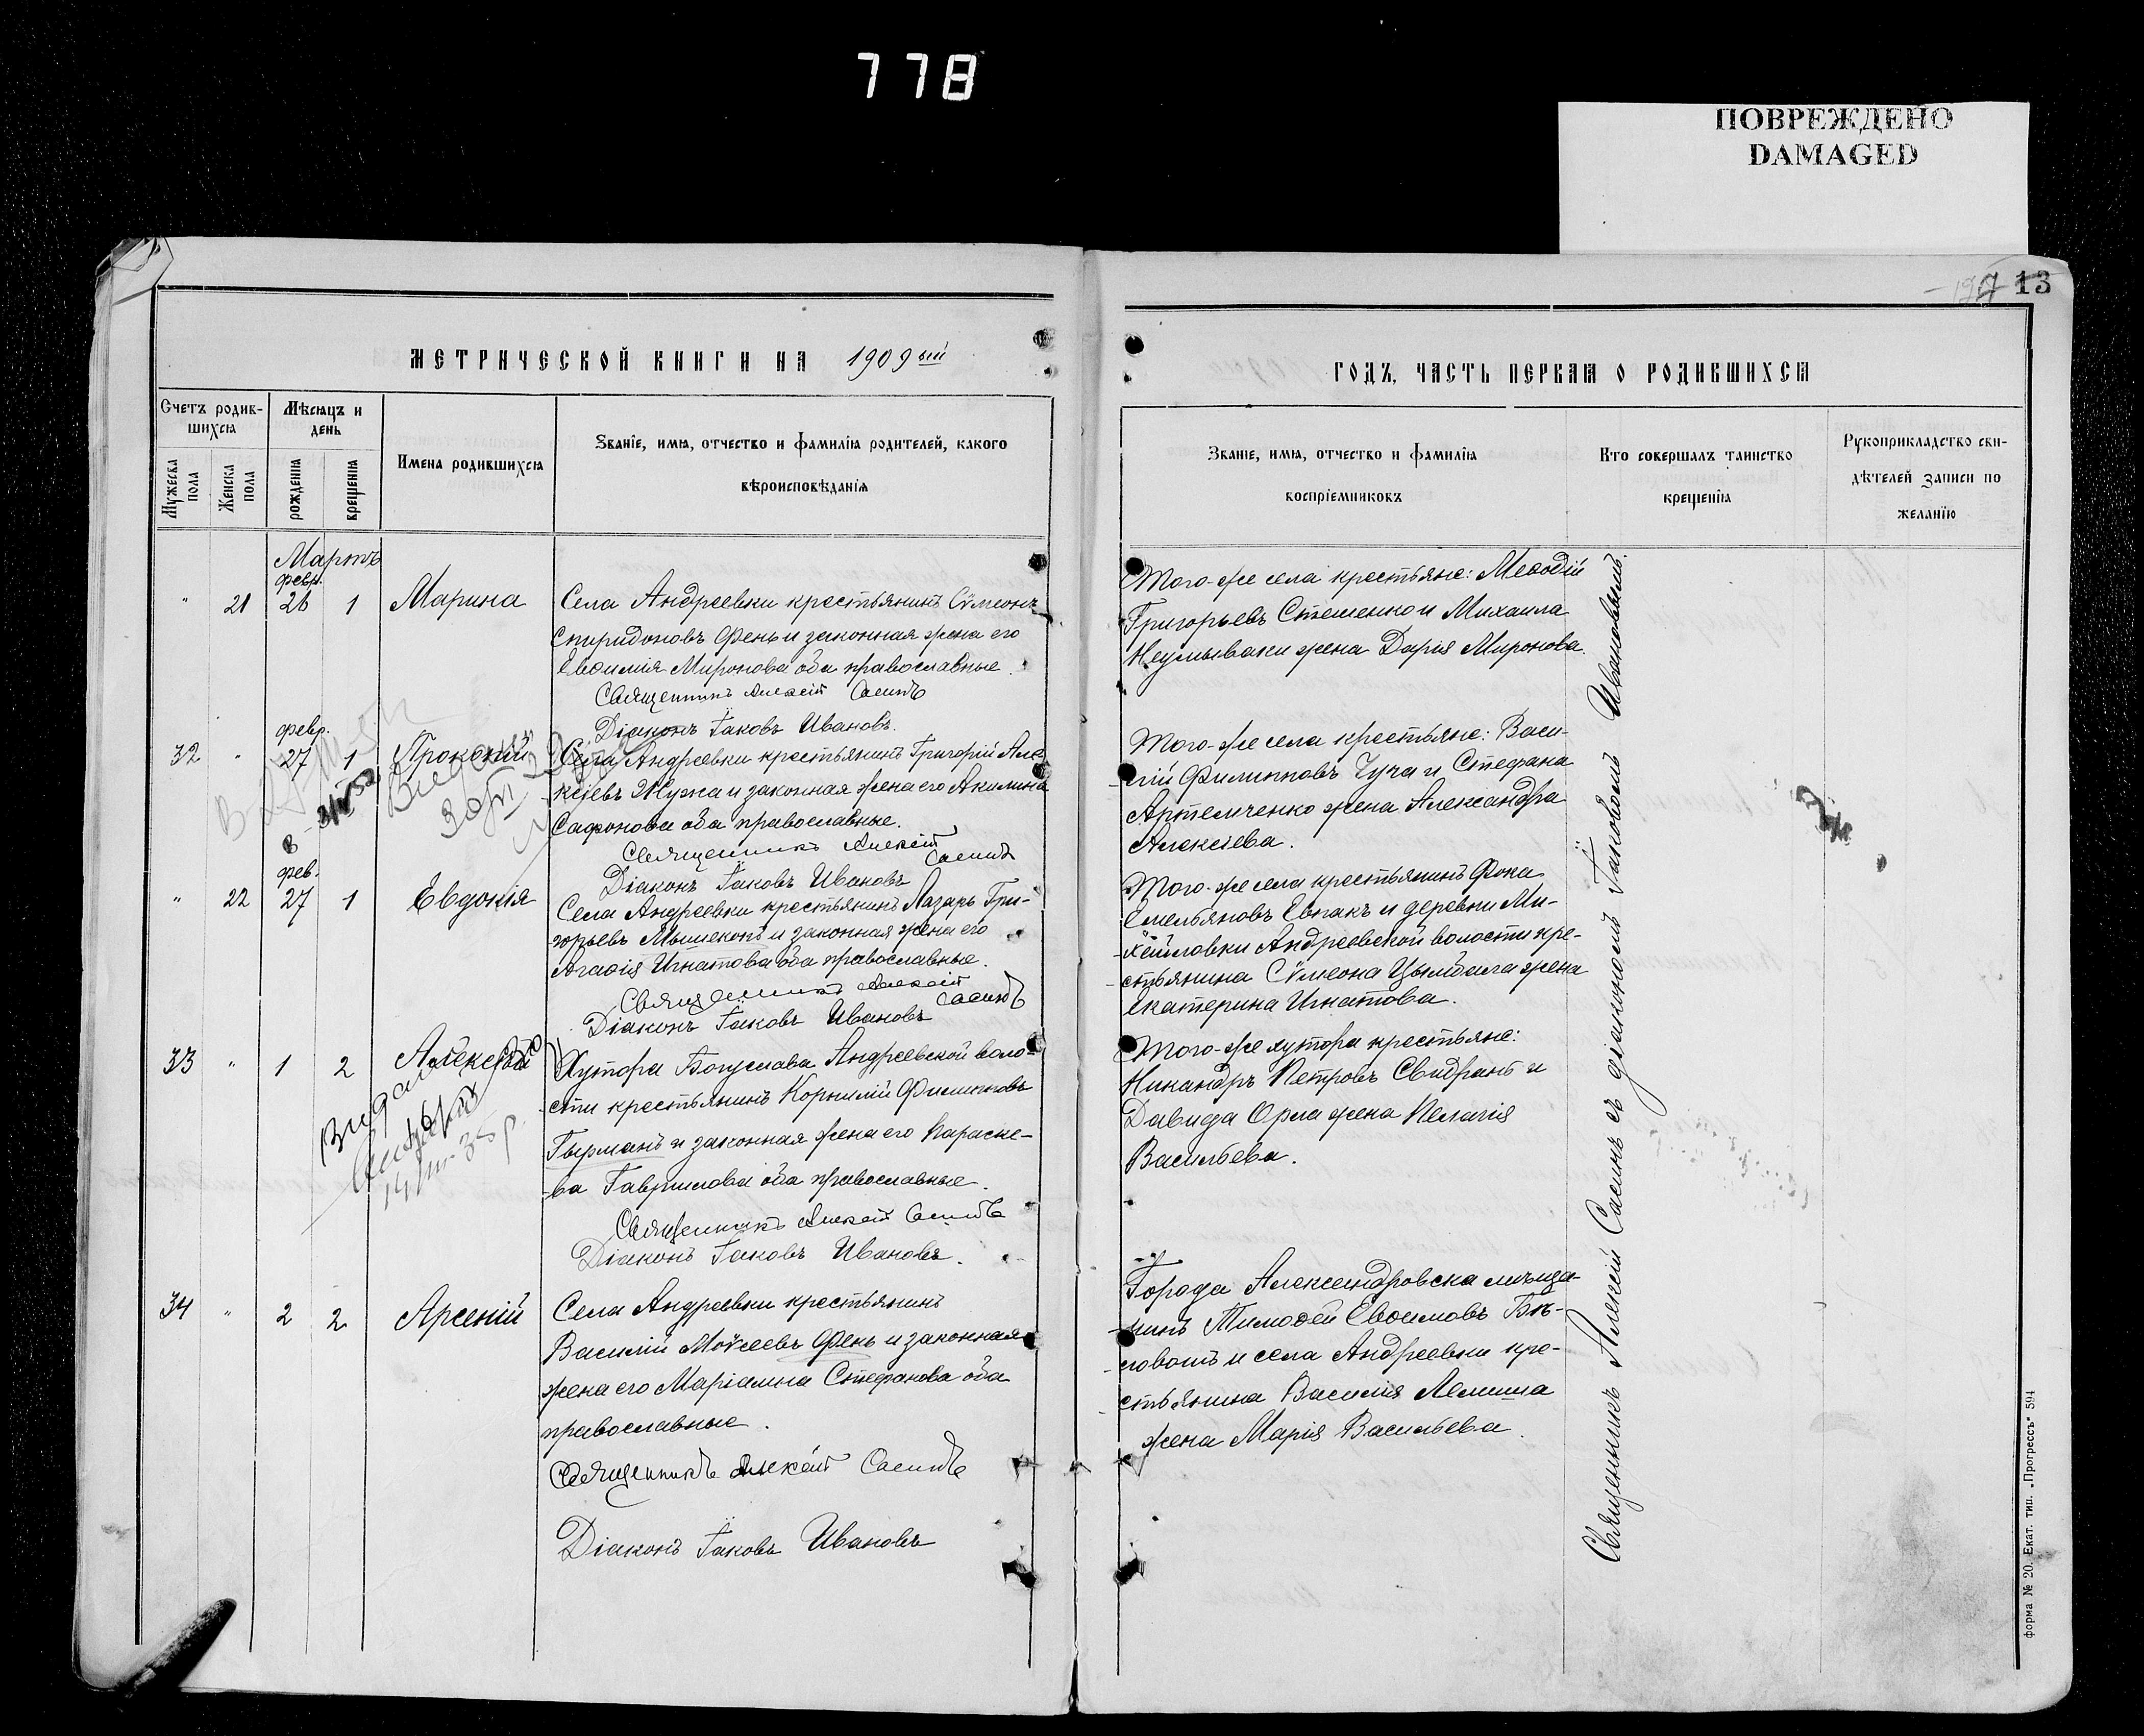 778
ПОВРЕЖДЕНО
DAMAGED
13
МЕТРИЧЕСКОЙ КНИГИ НА 1909ый
ГОДЪ, ЧАСТЬ ПЕРВАЯ О РОДИВШИХСЯ
Счетъ родив-
шихся
Мѣсяцъ и
день
Мужеска
пола
Женска
пола
рожденія
крещенія
Имена родившихся
Званіе, имя, отчество и фамилія родителей, какого
вѣроисповѣданія
Званіе, имя, отчество и фамилія
воспріемниковъ
Кто совершалъ таинство
крещенія
Рукоприкладство сви-
дѣтелей записи по
желанію
Мартъ
февр.
" 21 26 1 Марина
Села Андреевки крестьянинъ Сѵмеонъ
Спиридоновъ Фень и законная жена его
Евѳимія Миронова оба православные.
Священникъ Алексій
Діаконъ Іаковъ Ивановъ.
Того-же села крестьяне: Меѳодій
Григорьевъ Стешенко и Михаила
Неумываки жена Дарія Миронова.
февр.
32 " 27 1 Прокопій
Села Андреевки крестьянинъ Григорій Але-
ксіевъ Жужа и законная жена его Акилина
Сафонова оба православные.
Священникъ Алексій
Діаконъ Іаковъ Ивановъ
Того-же села крестьяне: Васи-
лій Филипповъ Чуча и Стефана
Артемченко жена Александра
Алексіева.
фев.
" 22 27 1 Евдокія
Села Андреевки крестьянинъ Лазарь Гри-
горьевъ и законная жена его
Агаѳія Игнатова оба православные.
Священникъ Алексій
Діаконъ Іаковъ Ивановъ
Того-же села крестьянинъ Фока
Емельяновъ Евтакъ и деревни Ми-
хайловки Андреевской волости кре-
стьянина Сѵмеона Цымбала жена
Екатерина Игнатова.
33 " 1 2 Алексѣй
Хутора Богуслава Андреевской воло-
сти крестьянинъ Корнилій Филипповъ
Гырманъ и законная жена его Параске-
ва Гаврилова оба православные.
Священникъ Алексій
Діаконъ Іаковъ Ивановъ.
Того-же хутора крестьяне:
Никандръ Петровъ Свидранъ и
Давида Орла жена Пелагія
Васильева.
34 " 2 2 Арсеній
Села Андреевки крестьянинъ
Василій Моѵсеевъ Фень и законная
жена его Маріамна Стефанова оба
православные.
Священникъ Алексій
Діаконъ Іаковъ Ивановъ
Города Александровска мѣща-
нинъ Тимоѳей Евѳимовъ Бѣ-
ловолъ и села Андреевки кре-
стьянина Василія Лемиша
жена Марія Васильева.
Священникъ Алексій съ діакономъ Іаковомъ Ивановымъ.
Форма № 20. Екат. тип. „Прогрессъ" 594